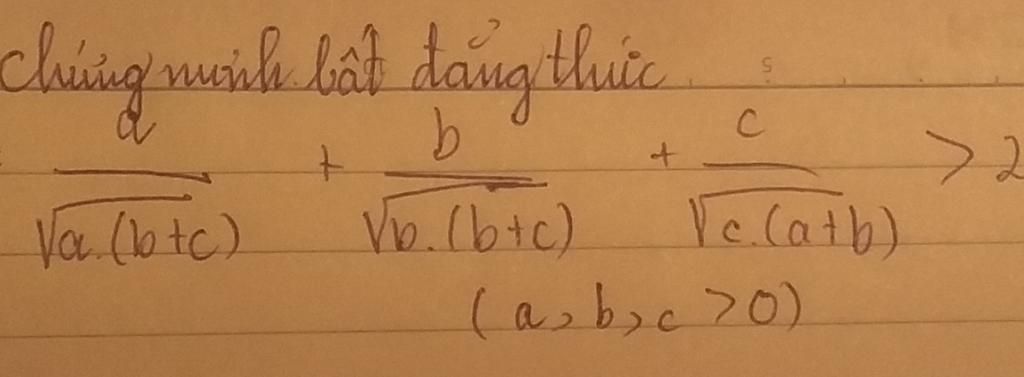 chứng minh bất đẳng thức
a/√a.(b+c) + b/√b.(b+c) + c/√c.(a+b) > 2
(a, b, c > 0)